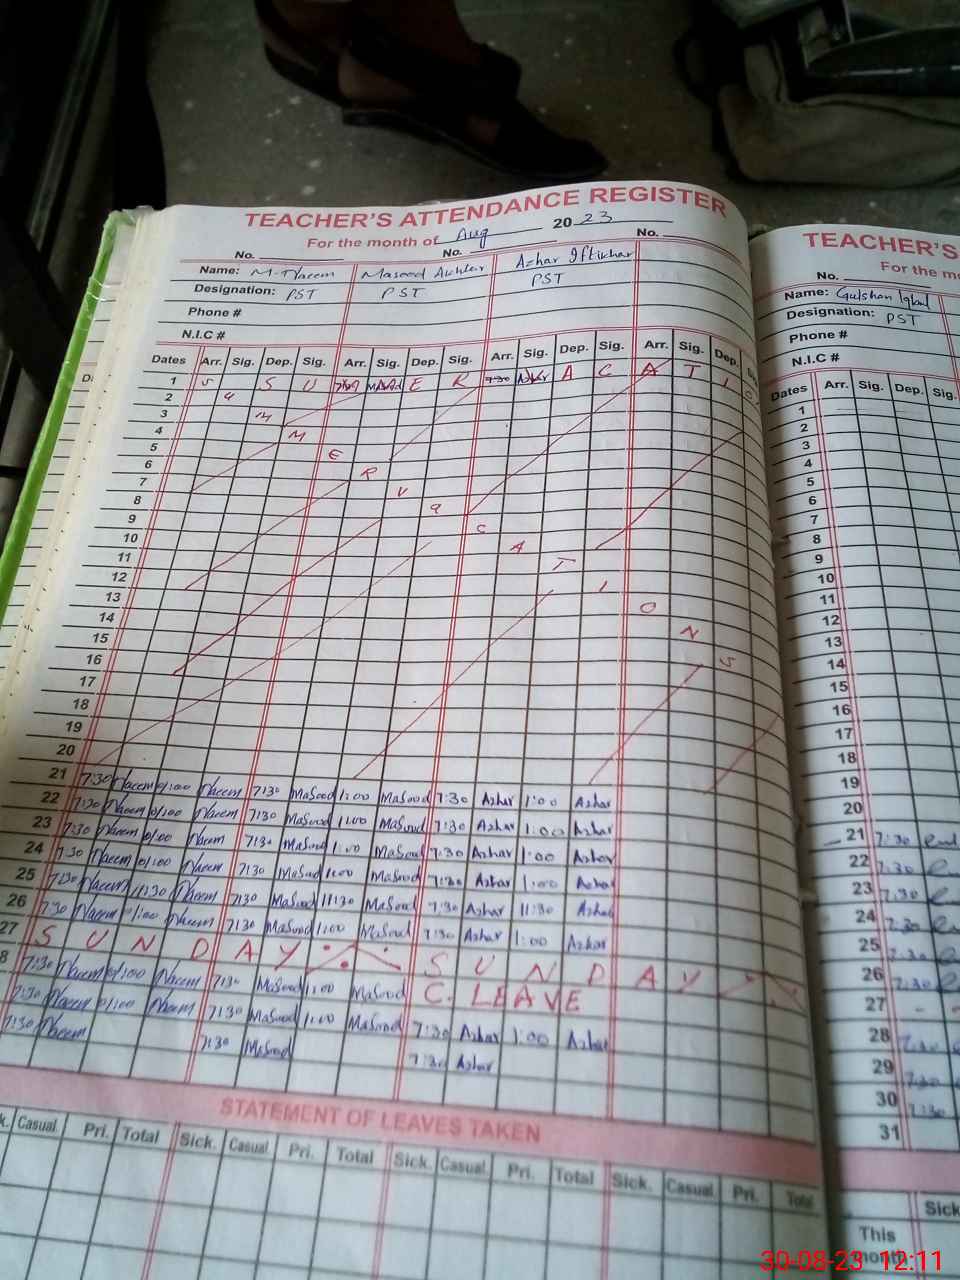 TEACHER'S ATTENDANCE REGISTER
For the month of Aug 2023
No. No. No.
Name: M. Naeem Masood Akhter Azhar Iftikhar
Designation: PST PST PST
Phone #
N.I.C #
Dates Arr. Sig. Dep. Sig. Arr. Sig. Dep. Sig. Arr. Sig. Dep. Sig. Arr. Sig. Dep.
1 S S U E R 7:30 A C A T I
2 U
3 M
4 M
5 E
6 R
7 V
8 a
9 C
10 A
11 T
12 I
13 O
14 N
15 S
16
17
18
19
20
21 7:30 Naeem 01:00 Naeem 7:30 Masood 1:00 Masood 7:30 Azhar 1:00 Azhar
22 7:30 Naeem 01:00 Naeem 7:30 Masood 1:00 Masood 7:30 Azhar 1:00 Azhar
23 7:30 Naeem 01:00 Naeem 7:30 Masood 1:00 Masood 7:30 Azhar 1:00 Azhar
24 7:30 Naeem 01:00 Naeem 7:30 Masood 1:00 Masood 7:30 Azhar 1:00 Azhar
25 7:30 Naeem 11:30 Naeem 7:30 Masood 11:30 Masood 7:30 Azhar 11:30 Azhar
26 7:30 Naeem 01:00 Naeem 7:30 Masood 1:00 Masood 7:30 Azhar 1:00 Azhar
27 S U N D A Y S U N D A Y
8 7:30 Naeem 01:00 Naeem 7:30 Masood 1:00 Masood C. LEAVE
7:30 Naeem 01:00 Naeem 7:30 Masood 1:00 Masood 7:30 Azhar 1:00 Azhar
7:30 Naeem 7:30 Masood 7:30 Azhar
STATEMENT OF LEAVES TAKEN
Casual. Pri. Total Sick. Casual. Pri. Total Sick. Casual. Pri. Total Sick. Casual. Pri. Total
TEACHER'S
For the
No.
Name: Gulshan Iqbal
Designation: PST
Phone #
N.I.C #
Dates Arr. Sig. Dep. Sig.
1
2
3
4
5
6
7
8
9
10
11
12
13
14
15
16
17
18
19
20
21 7:30
22 7:30
23 7:30
24 7:30
25 7:30
26 7:30
27
28 7:30
29 7:30
30 7:30
31
Sick
This
month
30-08-23 12:11